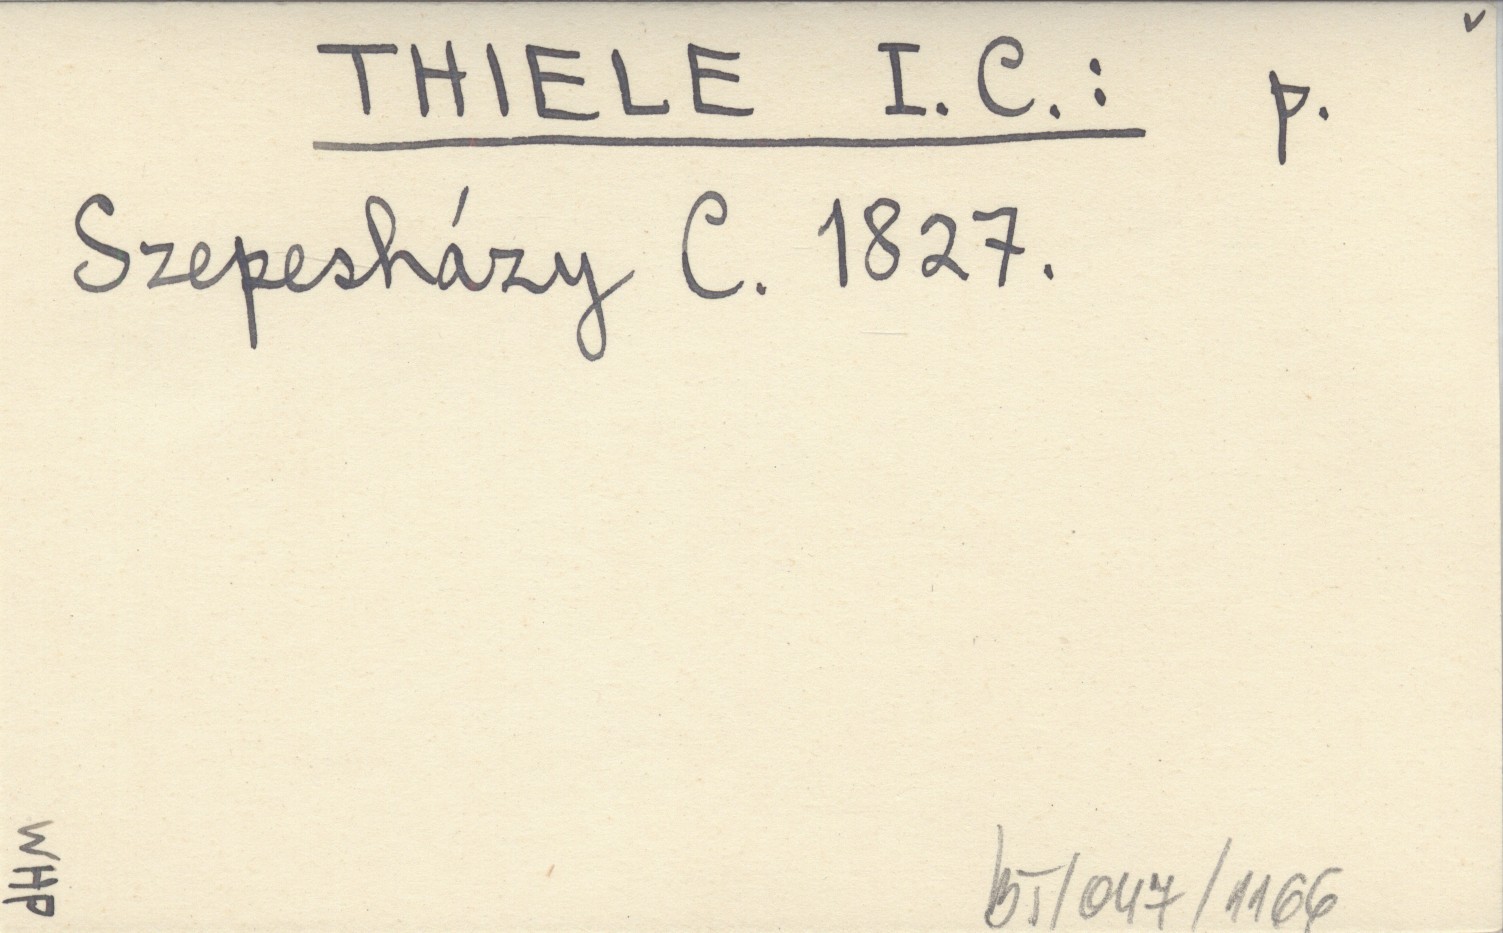 v
THIELE I.C.: p.
Szepesházy C. 1827.
WHP
BJ/047/1166